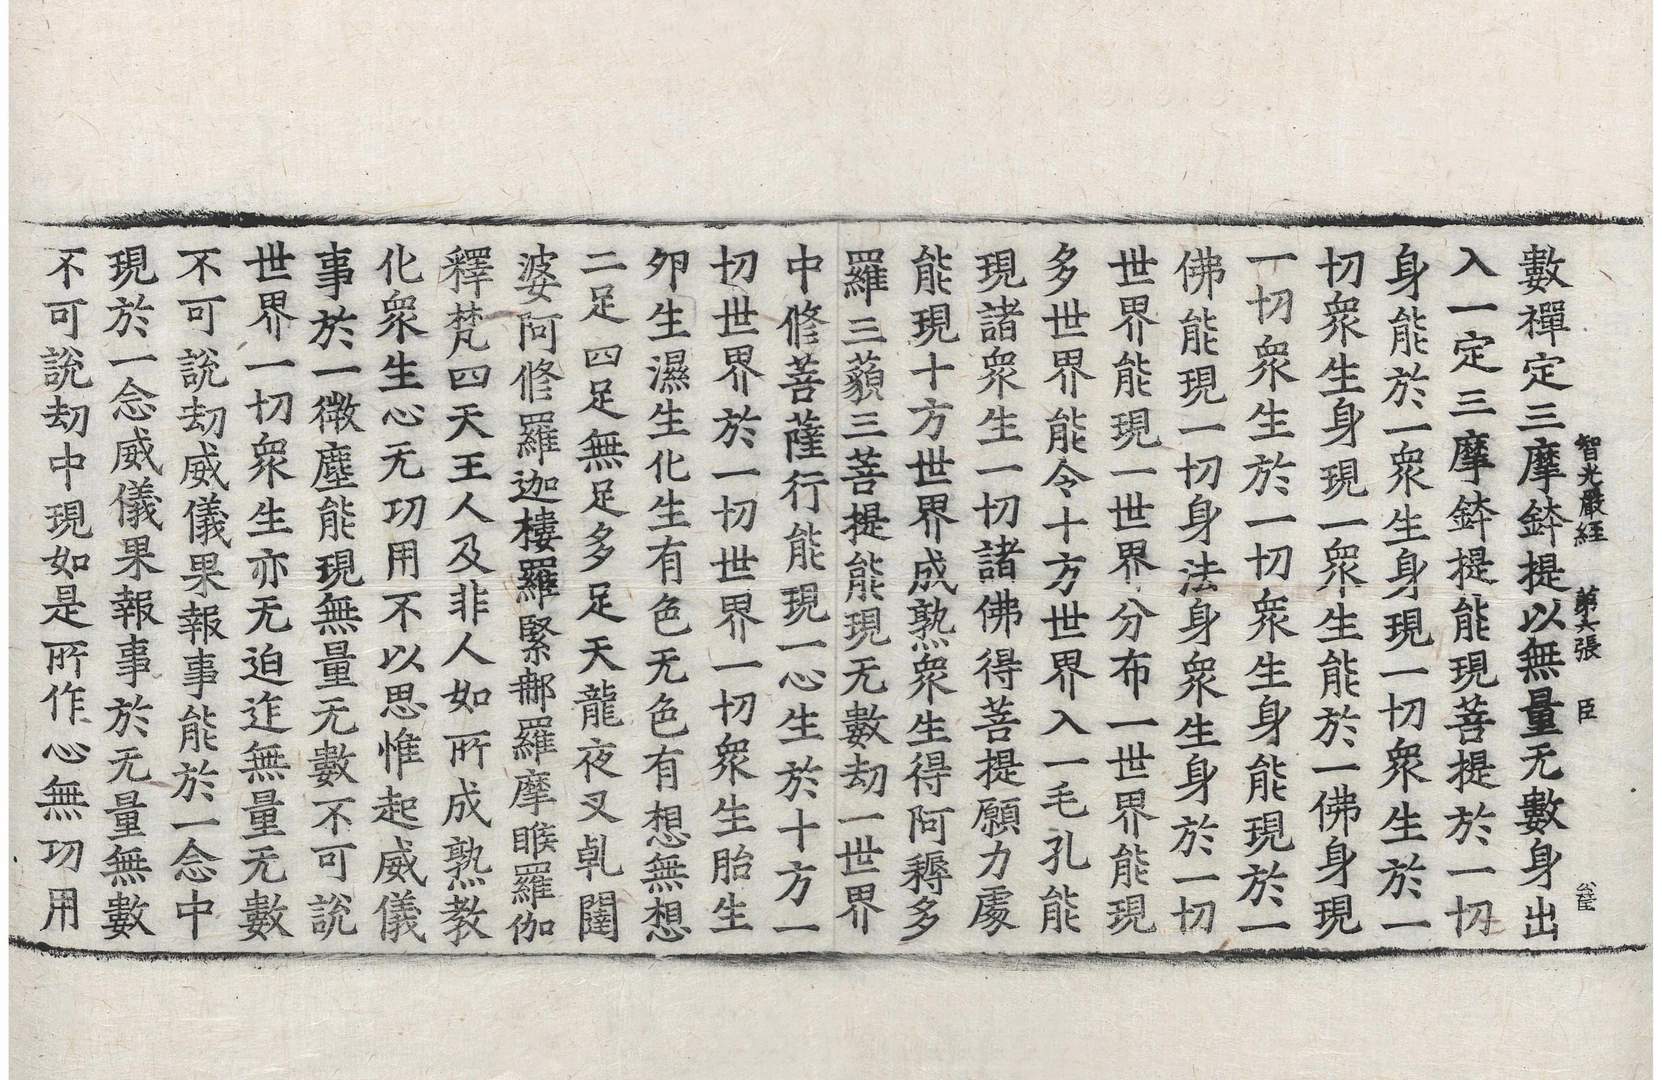 智光嚴經 第六張 臣
數禪定三摩鉢提以無量无數身出
入一定三摩鉢提能現菩提於一切
身能於一衆生身現一切衆生於一
切衆生身現一衆生能於一佛身現
一切衆生於一切衆生身能現於一
佛能現一切身法身衆生身於一切
世界能現一世界分布一世界能現
多世界能令十方世界入一毛孔能
現諸衆生一切諸佛得菩提願力處
能現十方世界成熟衆生得阿耨多
羅三藐三菩提能現无數劫一世界
中修菩薩行能現一心生於十方一
切世界於一切世界一切衆生胎生
卵生濕生化生有色无色有想無想
二足四足無足多足天龍夜叉乹闥
婆阿修羅迦樓羅緊那羅摩睺羅伽
釋梵四天王人及非人如所成熟教
化衆生心无功用不以思惟起威儀
事於一微塵能現無量无數不可說
世界一切衆生亦无迫迮無量无數
不可說劫威儀果報事能於一念中
現於一念威儀果報事於无量無數
不可說劫中現如是所作心無功用